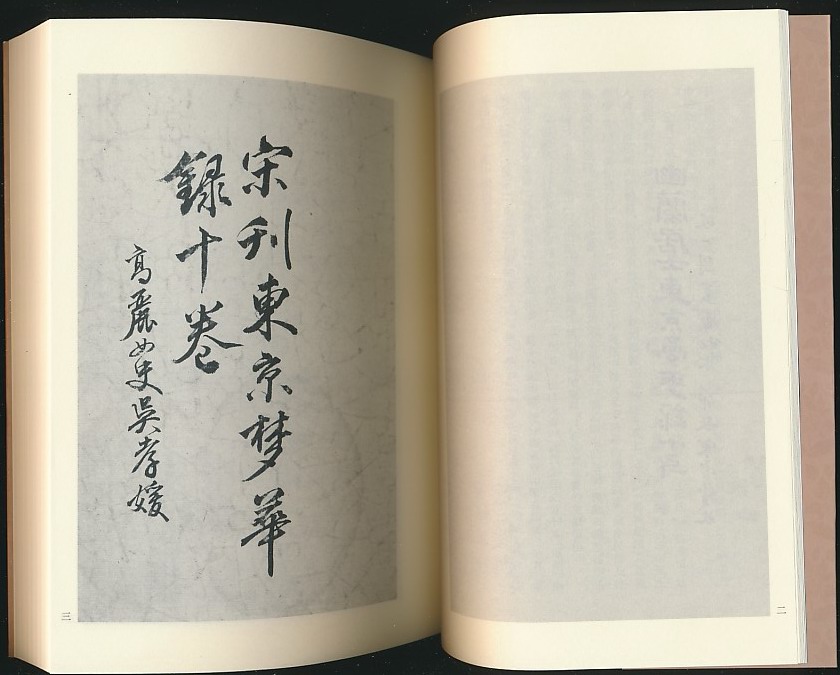 宋刊東京梦華
録十卷
高麗女史吳孝媛
二
三